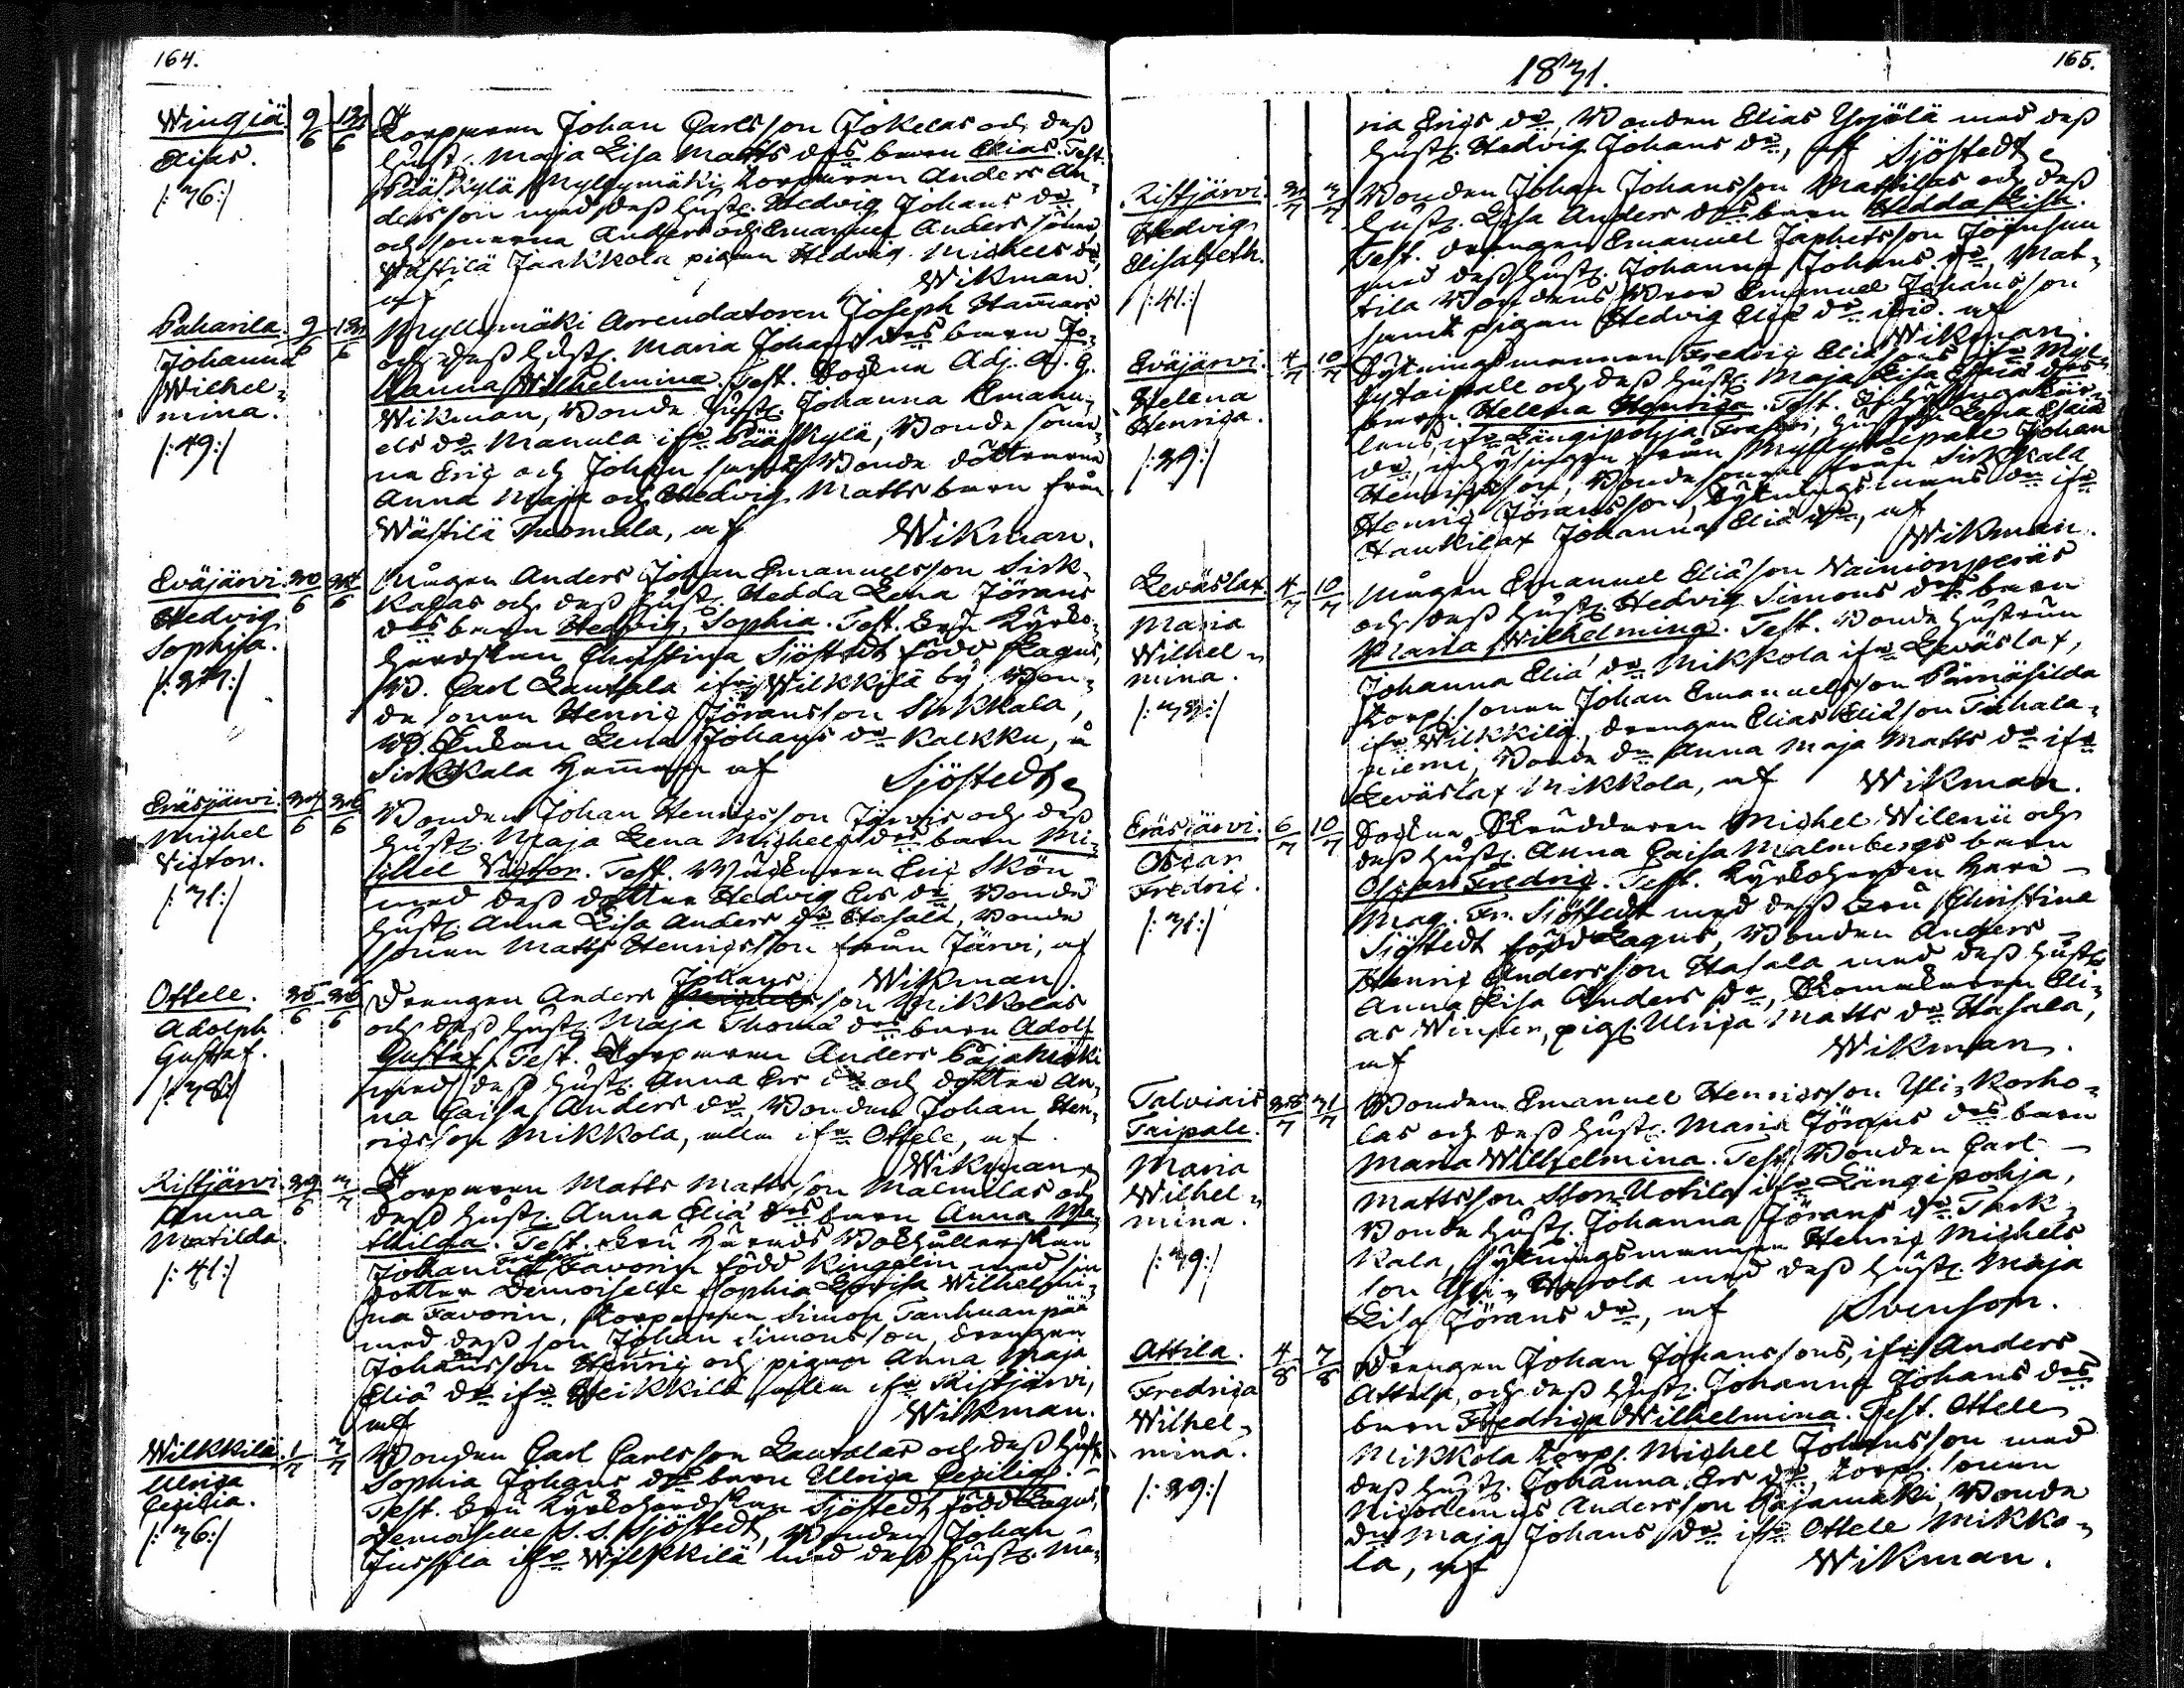 164.
Wingiä
Elias.
/:36:/
9/6 12/6
Torparen Johan Carlsson Jokelas och deß
hust. Maja Lisa Matts drs barn Elias. Test.
Pääskylä Myllymäki Torparen Anders An-
dersson med deß hust. Hedvig Johans dr,
och sönerna Anders och Emanuel Anders söner,
Wästilä Jaakkola pigan Hedvig Michels dr,
af Wikman.
Paharila.
Johanna
Wilhel-
mina.
/:49:/
Myllymäki Arrendatoren Joseph
och deß hust. Maria Johans drs barn Jo-
hanna Wilhelmina. Test. Sockne Adj. A. G.
Wikman, Bonde hust. Johanna Emanu-
els dr Manula ifr Pääskylä, Bonde söner-
na Eric och Johan samt Bonde döttrarna
Anna Maja och Hedvig Matts barn från
Wästilä Tuomala, af Wikman.
Eväjärvi.
Hedvig
Sophia.
Mågen Anders Johan Emanuelsson Sirk-
kalas och deß hust. Hedda Lena Jörans
drs barn Hedvig Sophia. Test. Fru Kyrko-
herdskan Christina Sjöstedt född Lagus,
B. Carl Lautala ifr Wilkkilä by, Bon-
de sonen Henric Jöransson Sirkkala,
B. Enkan Lena Johans dr Kalkku, å
Sirkkala af Sjöstedt
Eräsjärvi.
Michel
Victor.
/:31:/
Bonden Johan Henricsson Järvis och deß
hust. Maja Lena Michels drs barn Mi-
chel Victor. Test. Eric Skön
med deß dotter Hedvig Ers dr, Bonde
hust. Anna Lisa Anders dr Hasala, Bonde
sonen Matts Henricsson från Järvi, af
Wikman.
Ottele.
Adolph
Gustaf.
26/6 26/6
Drengen Anders Johansson Mikkolas
och deß hust. Maja Thomä drs barn Adolf
Gustaf. Test. Torparen Anders Pajamäki
med deß hust. Anna Ers dr och dotter An-
na Caisa Anders dr, Bonden Johan Hen-
ricsson Mikkola, alla ifr Ottele, af
Wikman
Ristjärvi.
Anna
Matilda.
/:41:/
29/6 3/7
Torparen Matts Mattsson Malmilas och
deß hust. Anna Eliä drs barn Anna Ma-
thilda. Test. Fru Härads Bokhållerskan
Johanna Favorin född Ringelin med sin
dotter Demoiselle Sophia Lovisa Wilhelmi-
na Favorin, Torparen Simon Tanhuanpää
med deß son Johan Simonsson, drengen
Johansson Henric och pigan Anna Maja
Eliä dr ifr Heikkilä alla ifr Ristjärvi,
af Wikman.
Wilkkilä.
Ulrica
Cecilia.
/:36:/
1/7 3/7
Bonden Carl Carlsson Lautalas och deß hust.
Sophia Johans drs barn Ulrica Cecilia.
Test. Fru Kyrkoherdskan Sjöstedt född Lagus,
Demoiselle S. S. Sjöstedt, Bonden Johan
Jussila ifr Wilkkilä med deß hust. Ma-
1831.
165.
ria Erics dr, Bonden Elias Yrjölä med deß
hust. Hedvig Johans dr, af Sjöstedt
Ristjärvi.
Hedvig
Elisabeth.
/:41:/
Bonden Johan Johansson Mattilas och deß
hust. Lisa Anders drs barn Hedda Lisa.
Test. Drengen Emanuel Japhetsson
med deß hust. Johanna Johans dr, Mat-
tila Bondens Bror Emanuel Johansson
samt pigan Hedvig Eliä dr ibid. af
Wikman.
Eväjärvi.
Helena
Henrica.
/:39:/
4/7 10/7
Sytningsmannen Fredric Eliäsons ifr Myl-
lytaipale och deß hust. Maja Lisa Eliä drs
barn Helena Henrica. Test.
lens ifr Längipohja hustru Lena
dr, inhysingen från Myllytaipale Johan
Henricsson, Bondesonen från Sirkkala
Henric Jöransson, Sytningsmans dr ifr
Haukilax Johanna Eliä dr, af
Wikman.
Leväslax.
Maria
Wilhel-
mina.
4/7 10/7
Mågen Emanuel Eliäson Wainionperäs
och deß hust. Hedvig Simons drs barn
Maria Wilhelmina. Test. Bonde hustrun
Johanna Eliä dr Mikkola ifr Leväslax,
Torp. sonen Johan Emanuelsson
ifr Wilkkilä, drengen Elias Eliäson
niemi, Bonde dr Anna Maja Matts dr ifr
Leväslax Mikkola, af Wikman.
Eräsjärvi.
Oscar
Fredric.
/:31:/
6/7 10/7
Sockne Skräddaren Michel Willenii och
deß hust. Anna Caisa Malmbergs barn
Oscar Fredric. Test. Kyrkoherden Herr
Mag. Fr. Sjöstedt med deß Fru Christina
Sjöstedt född Lagus, Bonden Anders
Henric Andersson Hasala med deß hust.
Anna Lisa Anders dr, Skomakaren Eli-
as Winsten, pig. Ulrica Matts dr Hasala,
af Wikman.
Talviais
Taipale.
Maria
Wilhel-
mina.
/:39:/
28/7 31/7
Bonden Emanuel Henricsson Yli-Korho-
las och deß hust. Maria Jörans drs barn
Maria Wilhelmina. Test. Bonden Carl
Mattsson Stor-Uotila ifr Längipohja,
Bonde hust. Johanna Jörans dr Turk-
kala, Sytningsmannen Henric Michels
son Yli- med deß hust. Maja
Lisa Jörans dr, af Svenson.
Attila.
Fredrica
Wilhel-
mina.
/:39:/
4/8 7/8
Drengen Johan Johanssons, ifr Anders
Attila, och deß hust. Johanna Johans drs
barn Fredrica Wilhelmina. Test. Ottele
Mikkola Torp. Michel Johansson med
deß hust. Johanna Ers dr, Torp. sonen
Nicodemus Andersson Pajamäki, Bonde
dr Maja Johans dr ifr Ottele Mikko-
la, af Wikman.